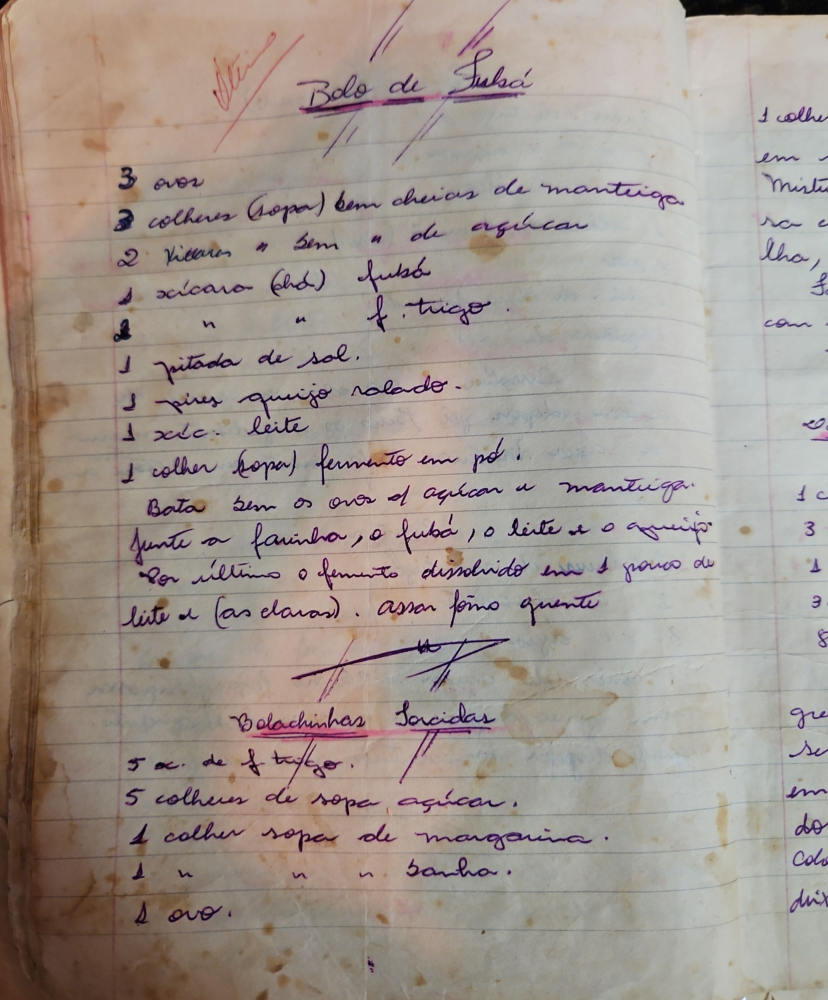 Ótimo
Bolo de Fubá
3 ovos
3 colheres (sopa) bem cheias de manteiga
2 xícaras " bem " de açúcar
1 xícara (chá) fubá
1 " " f. trigo.
1 pitada de sal.
1 pires queijo ralado.
1 xíc. leite
1 colher (sopa) fermento em pó.
Bata bem os ovos c/ açúcar e manteiga.
Junte a farinha, o fubá, o leite e o queijo.
Por último o femento dissolvido em 1 pouco de
leite e (as claras). assar fôrno quente
Bolachinhas Torcidas
5 x. de f trigo.
5 colheres de sopa açúcar.
1 colher sopa de margarina.
1 " " " banha.
1 ovo.
1 colhe
em
Mistu
sa
lha,
com
1 c
3
1
3
8
gre
se
em
do
colo
deix